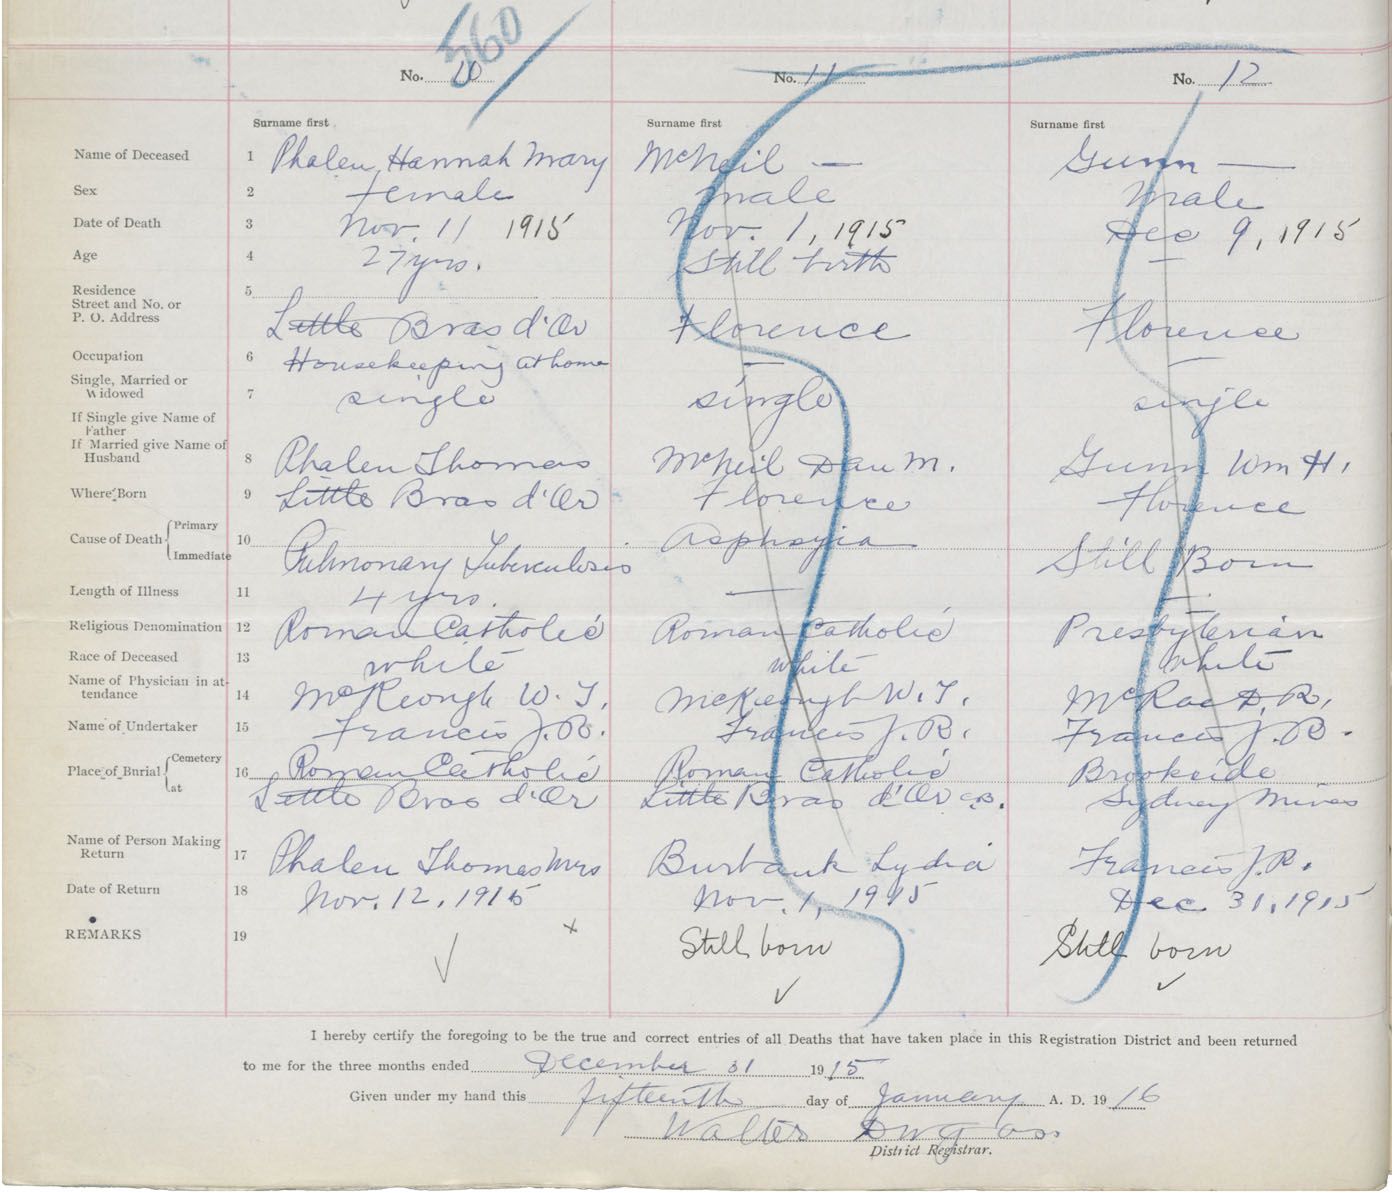 560
No. 10 No. 11 No. 12
Surname first Surname first Surname first
Name of Deceased 1 Phalen, Hannah Mary McNeil — Gunn —
Sex 2 female male Male
Date of Death 3 Nov. 11 1915 Nov. 1, 1915 Dec 9, 1915
Age 4 27 yrs. Still birth —
Residence 5
Street and No. or
P. O. Address Little Bras d'Or Florence Florence
Occupation 6 Housekeeping at home — —
Single, Married or
Widowed 7 single single single
If Single give Name of
Father
If Married give Name of
Husband 8 Phalen Thomas McNeil Dan M. Gunn Wm H.
Where Born 9 Little Bras d'Or Florence Florence
Cause of Death { Primary
Immediate 10 Pulmonary Tuberculosis Asphyxia Still Born
Length of Illness 11 4 yrs. — —
Religious Denomination 12 Roman Catholic Roman Catholic Presbyterian
Race of Deceased 13 white white white
Name of Physician in at-
tendance 14 McKeough W. T. McKeough W. T. McRae D. R.
Name of Undertaker 15 Francis J. R. Francis J. R. Francis J. R.
Place of Burial { Cemetery 16 Roman Catholic Roman Catholic Brookside
at Little Bras d'Or Little Bras d'Or C.B. Sydney Mines
Name of Person Making
Return 17 Phalen Thomas Mrs Burbank Lydia Francis J. R.
Date of Return 18 Nov. 12, 1915 Nov. 1, 1915 Dec 31, 1915
REMARKS 19 Still born Still born
I hereby certify the foregoing to be the true and correct entries of all Deaths that have taken place in this Registration District and been returned
to me for the three months ended December 31 1915
Given under my hand this fifteenth day of January A. D. 1916
Walter
District Registrar.